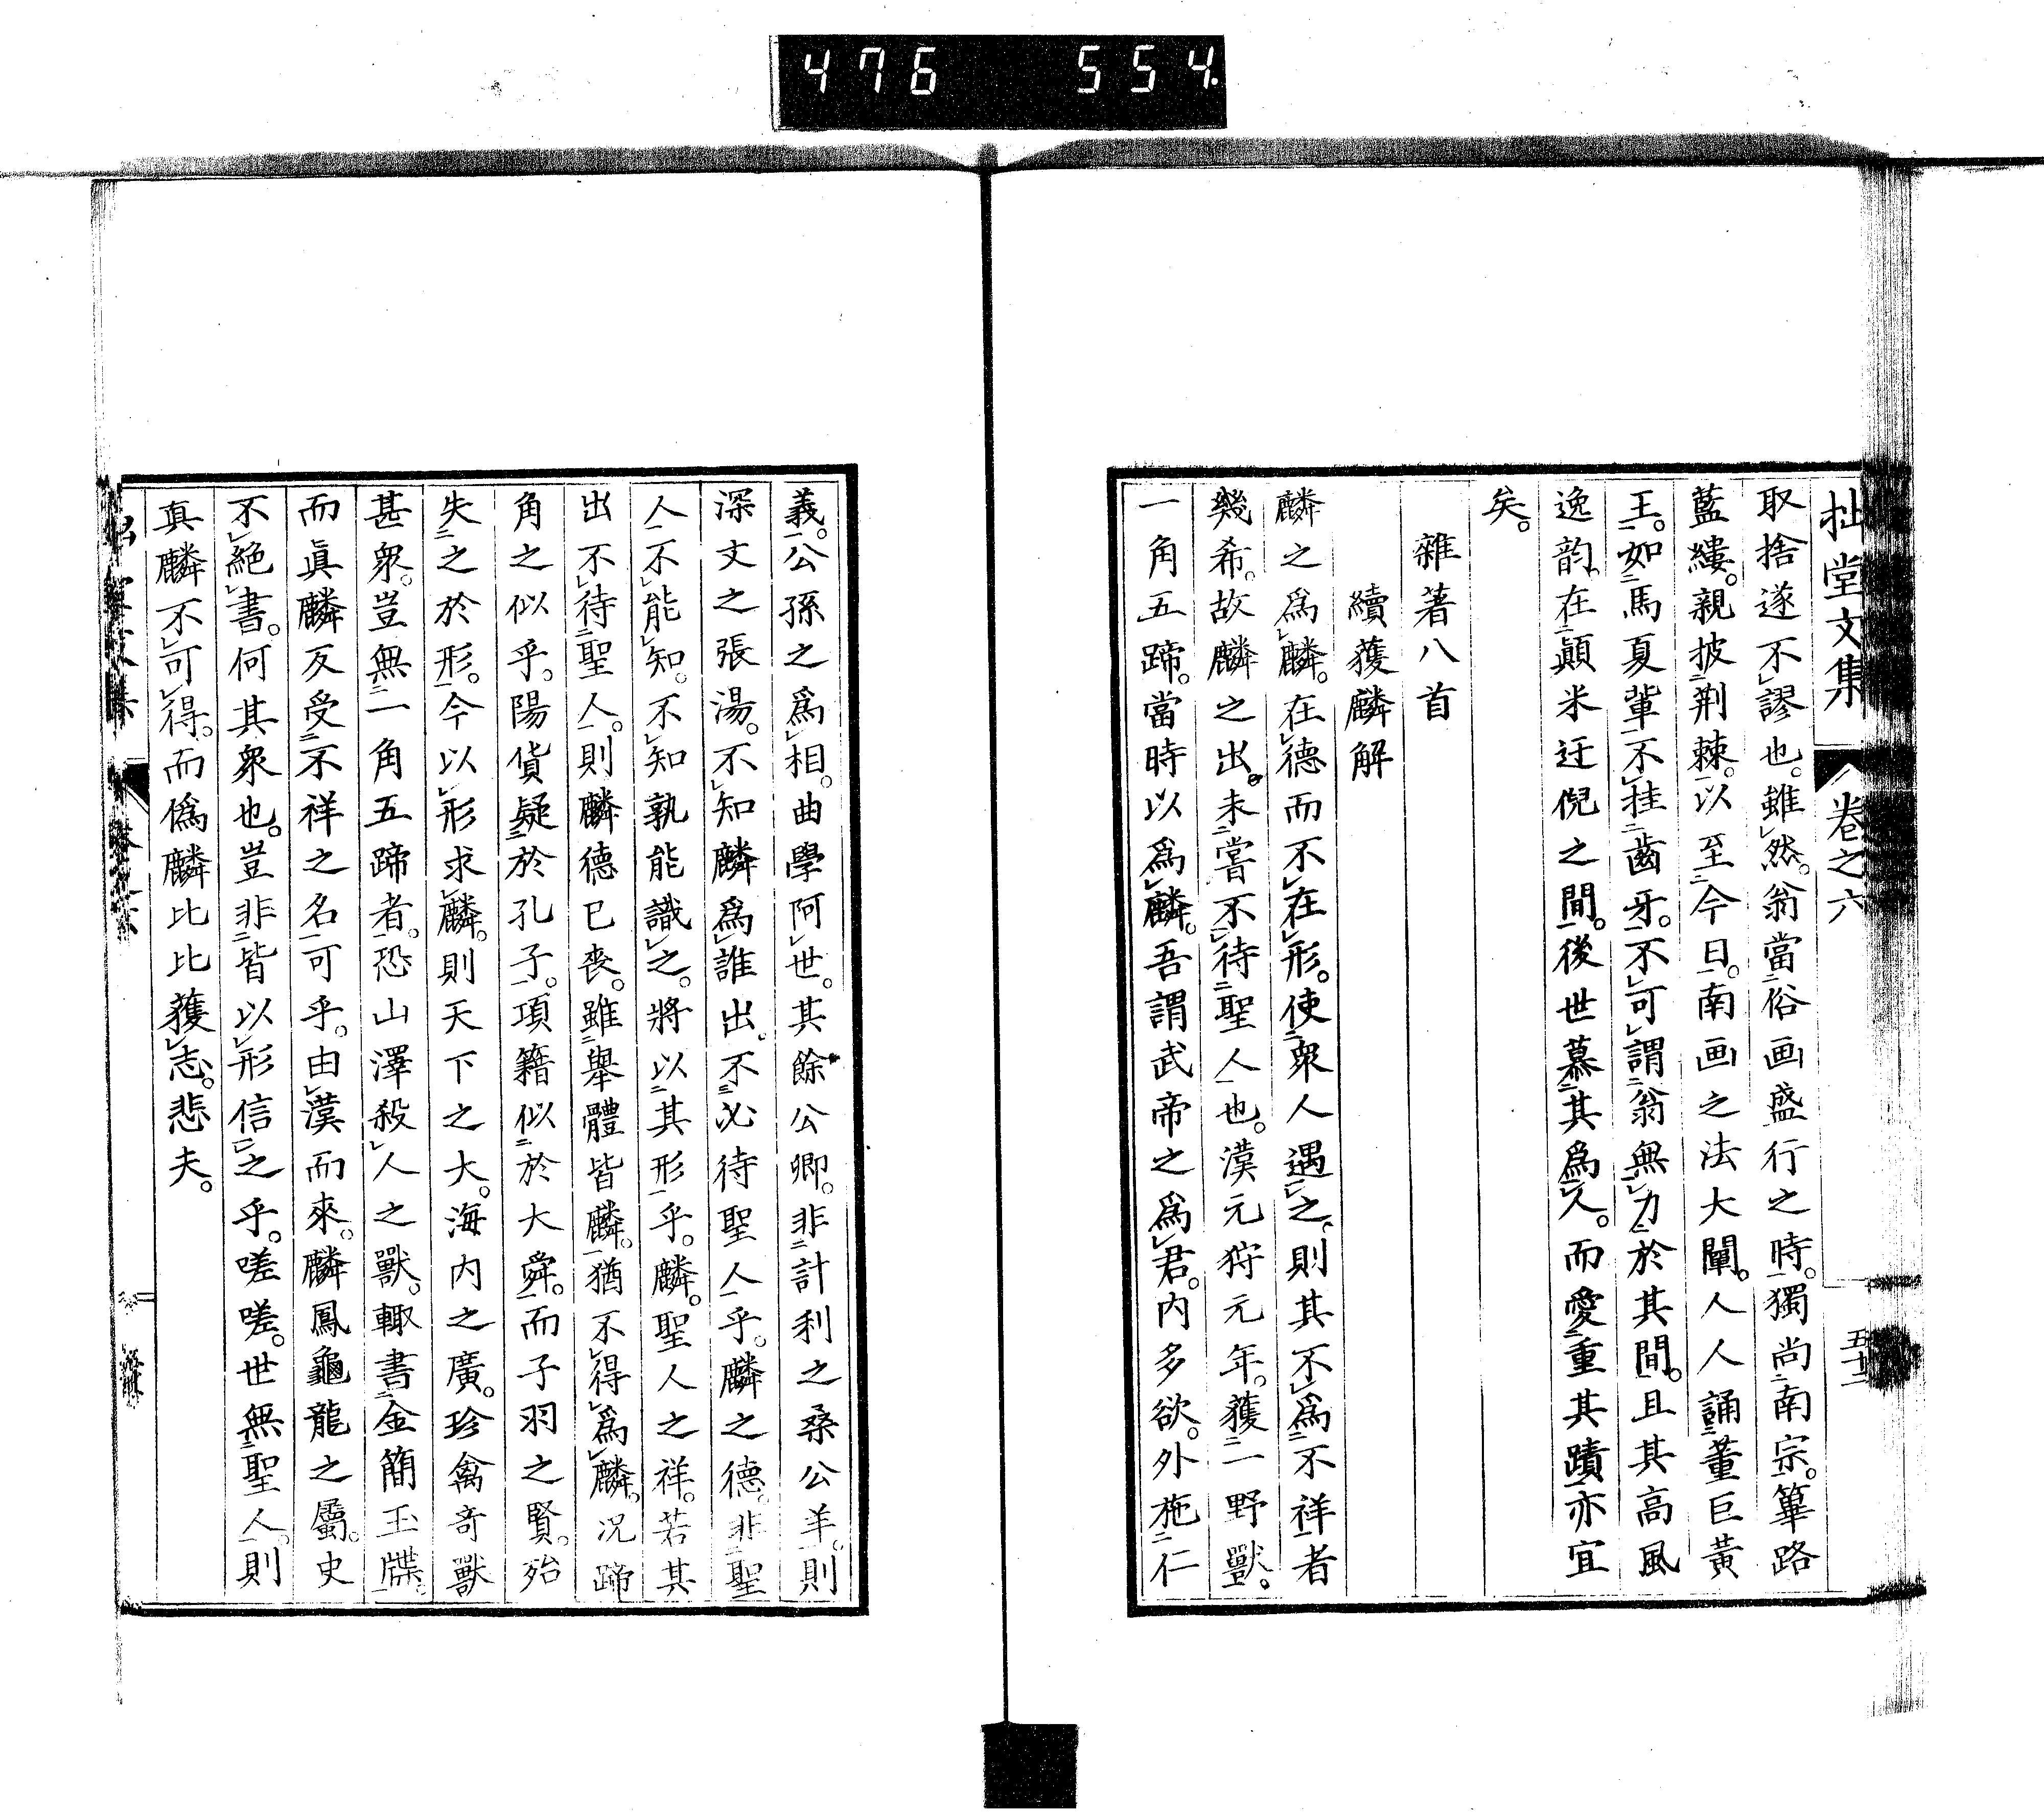 476 554
拙堂文集 卷之六 五十二
取捨遂不謬也。雖然。翁當俗画盛行之時。獨尚南宗。篳路
藍縷。親披荆棘。以至今日。南画之法大闡。人人誦董巨黃
王。如馬夏輩不挂齒牙。不可謂翁無力於其間。且其高風
逸韵。在顚米迂倪之間。後世慕其爲人。而愛重其蹟亦宜
矣。
雜著八首
續獲麟解
麟之爲麟。在德而不在形。使衆人遇之、則其不爲不祥者
幾希。故麟之出。未嘗不待聖人也。漢元狩元年。獲一野獸。
一角五蹄。當時以爲麟。吾謂武帝之爲君。內多欲。外施仁
義。公孫之爲相。曲學阿世。其餘公卿。非計利之桑公羊。則
深文之張湯。不知麟爲誰出。不必待聖人乎。麟之德。非聖
人不能知。不知孰能識之。將以其形乎。麟。聖人之祥。若其
出不待聖人。則麟德已喪。雖擧體皆麟。猶不得爲麟。况蹄
角之似乎。陽貨疑於孔子。項籍似於大舜。而子羽之賢。殆
失之於形。今以形求麟。則天下之大。海内之廣。珍禽奇獸
甚衆。豈無一角五蹄者。恐山澤殺人之獸。輙書金簡玉牒。
而眞麟反受不祥之名可乎。由漢而來。麟鳳龜龍之屬。史
不絕書。何其衆也。豈非皆以形信之乎。嗟嗟。世無聖人。則
真麟不可得。而僞麟比比獲志。悲夫。